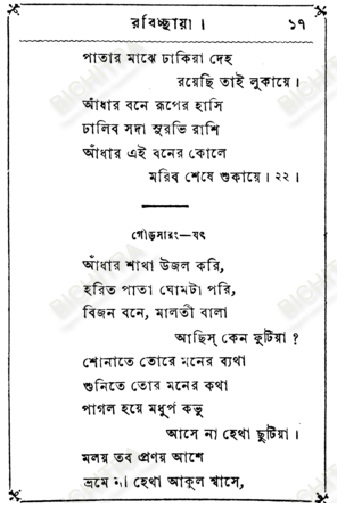 রবিচ্ছায়া । ১৭
পাতার মাঝে ঢাকিয়া দেহ
রয়েছি তাই লুকায়ে ।
আঁধার বনে রূপের হাসি
ঢালিব সদা সুরভি রাশি
আঁধার এই বনের কোলে
মরিব শেষে শুকায়ে ॥ ২২ ।
গৌড়সারং—যৎ
আঁধার শাখা উজল করি,
হরিত পাতা ঘোমটা পরি,
বিজন বনে, মালতী বালা
আছিস্ কেন ফুটিয়া ?
শোনাতে তোরে মনের ব্যথা
শুনিতে তোর মনের কথা
পাগল হয়ে মধুপ কভু
আসে না হেথা ছুটিয়া ।
মলয় তব প্রণয় আশে
ভ্রমে না হেথা আকুল শ্বাসে,
BICHITRA